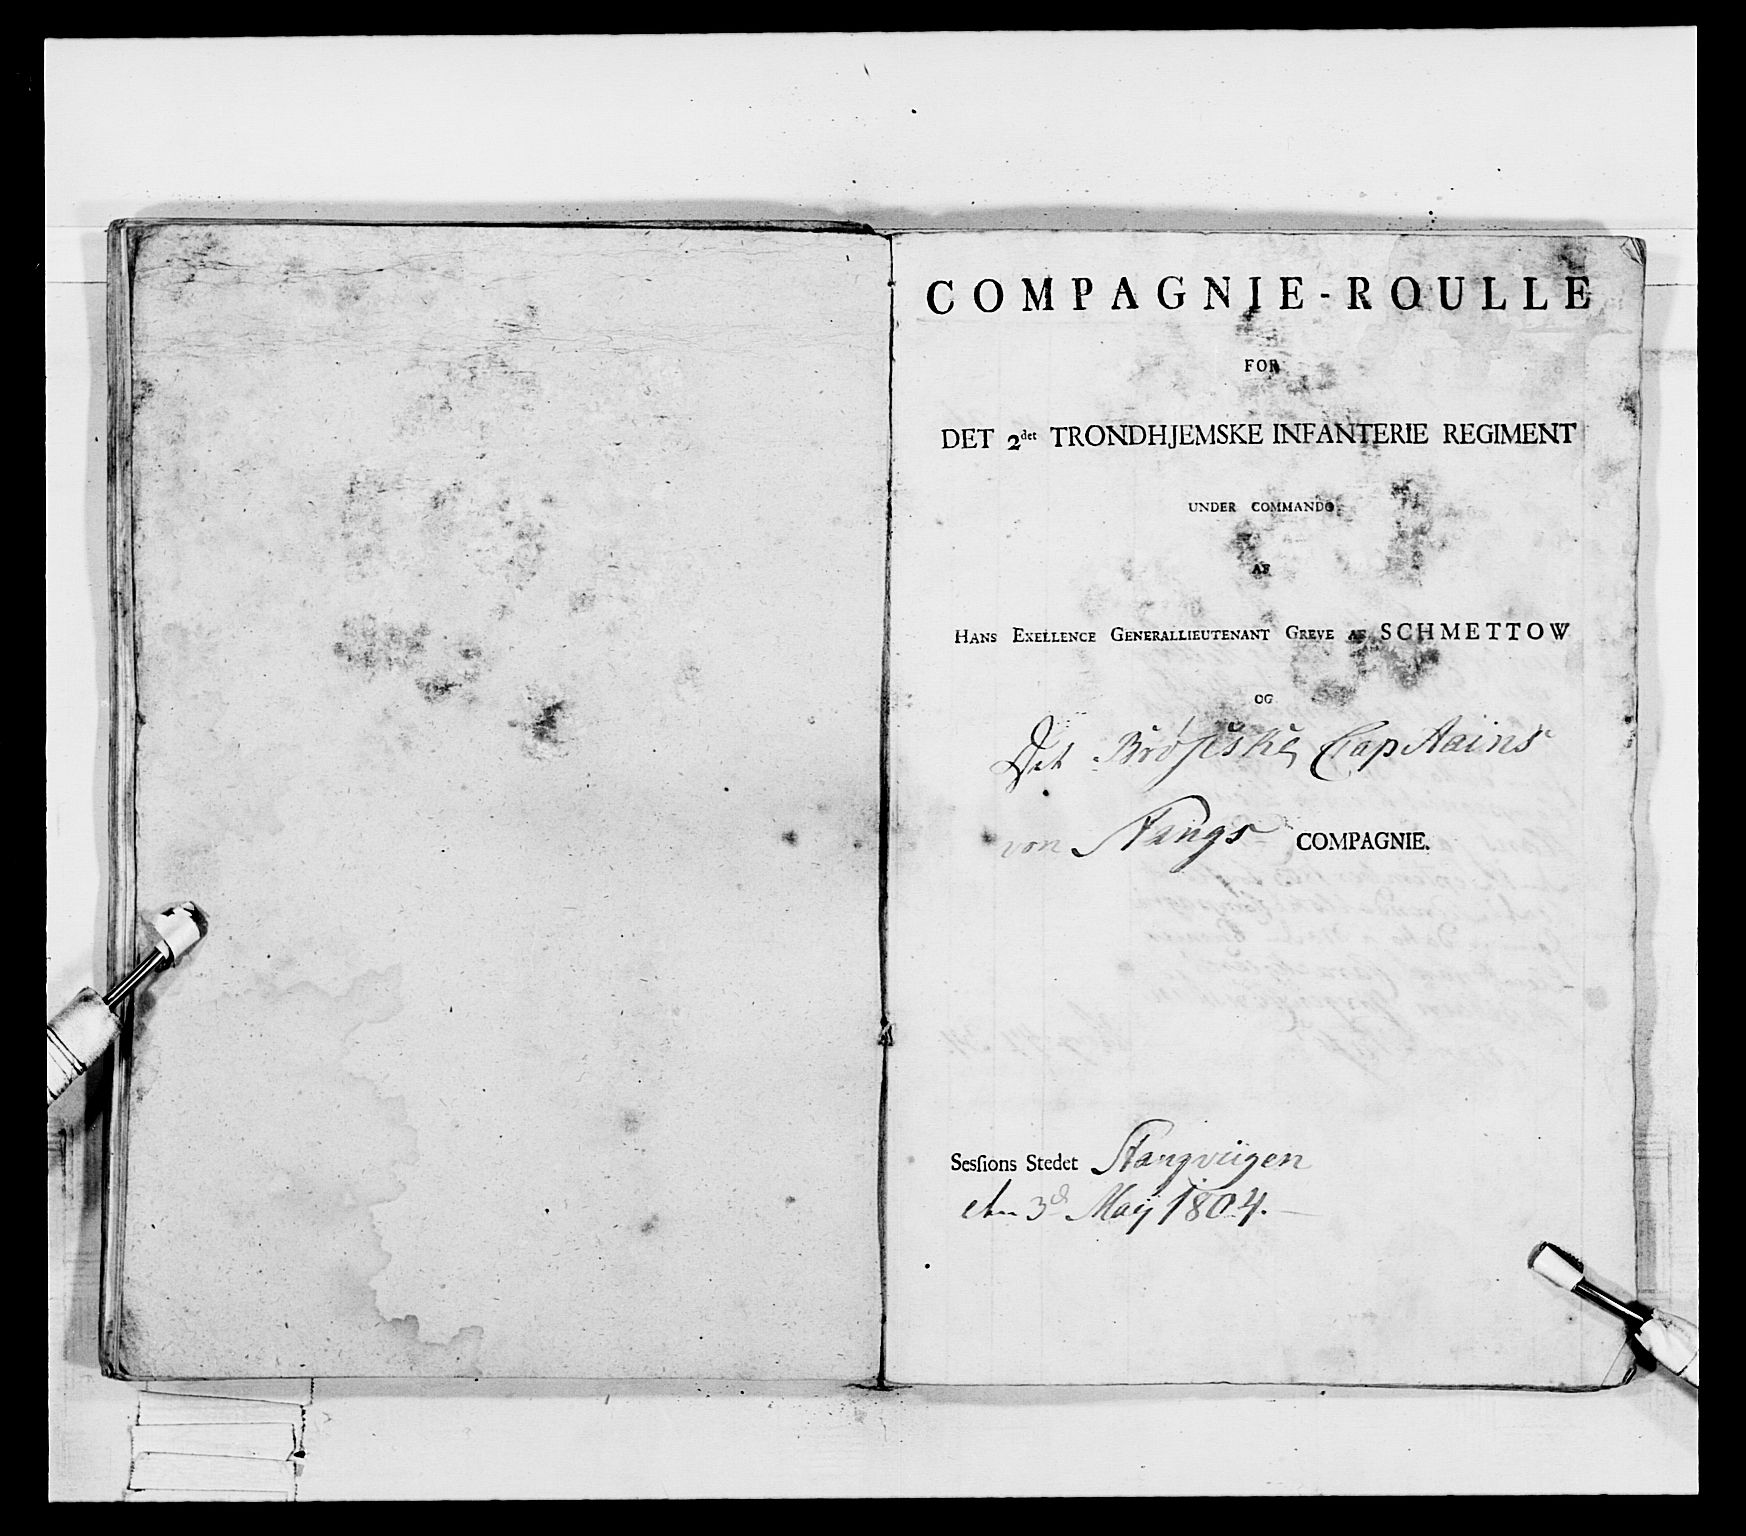 COMPAGNIE-ROULLE
FOR
DET 2det TRONDHJEMSKE INFANTERIE REGIMENT
UNDER COMMANDO
AF
HANS EXELLENCE GENERALLIEUTENANT GREVE AF SCHMETTOW
OG
Det Capitains
von Stangs COMPAGNIE.
Sesſions Stedet Stangvigen
den 3d Maij 1804.